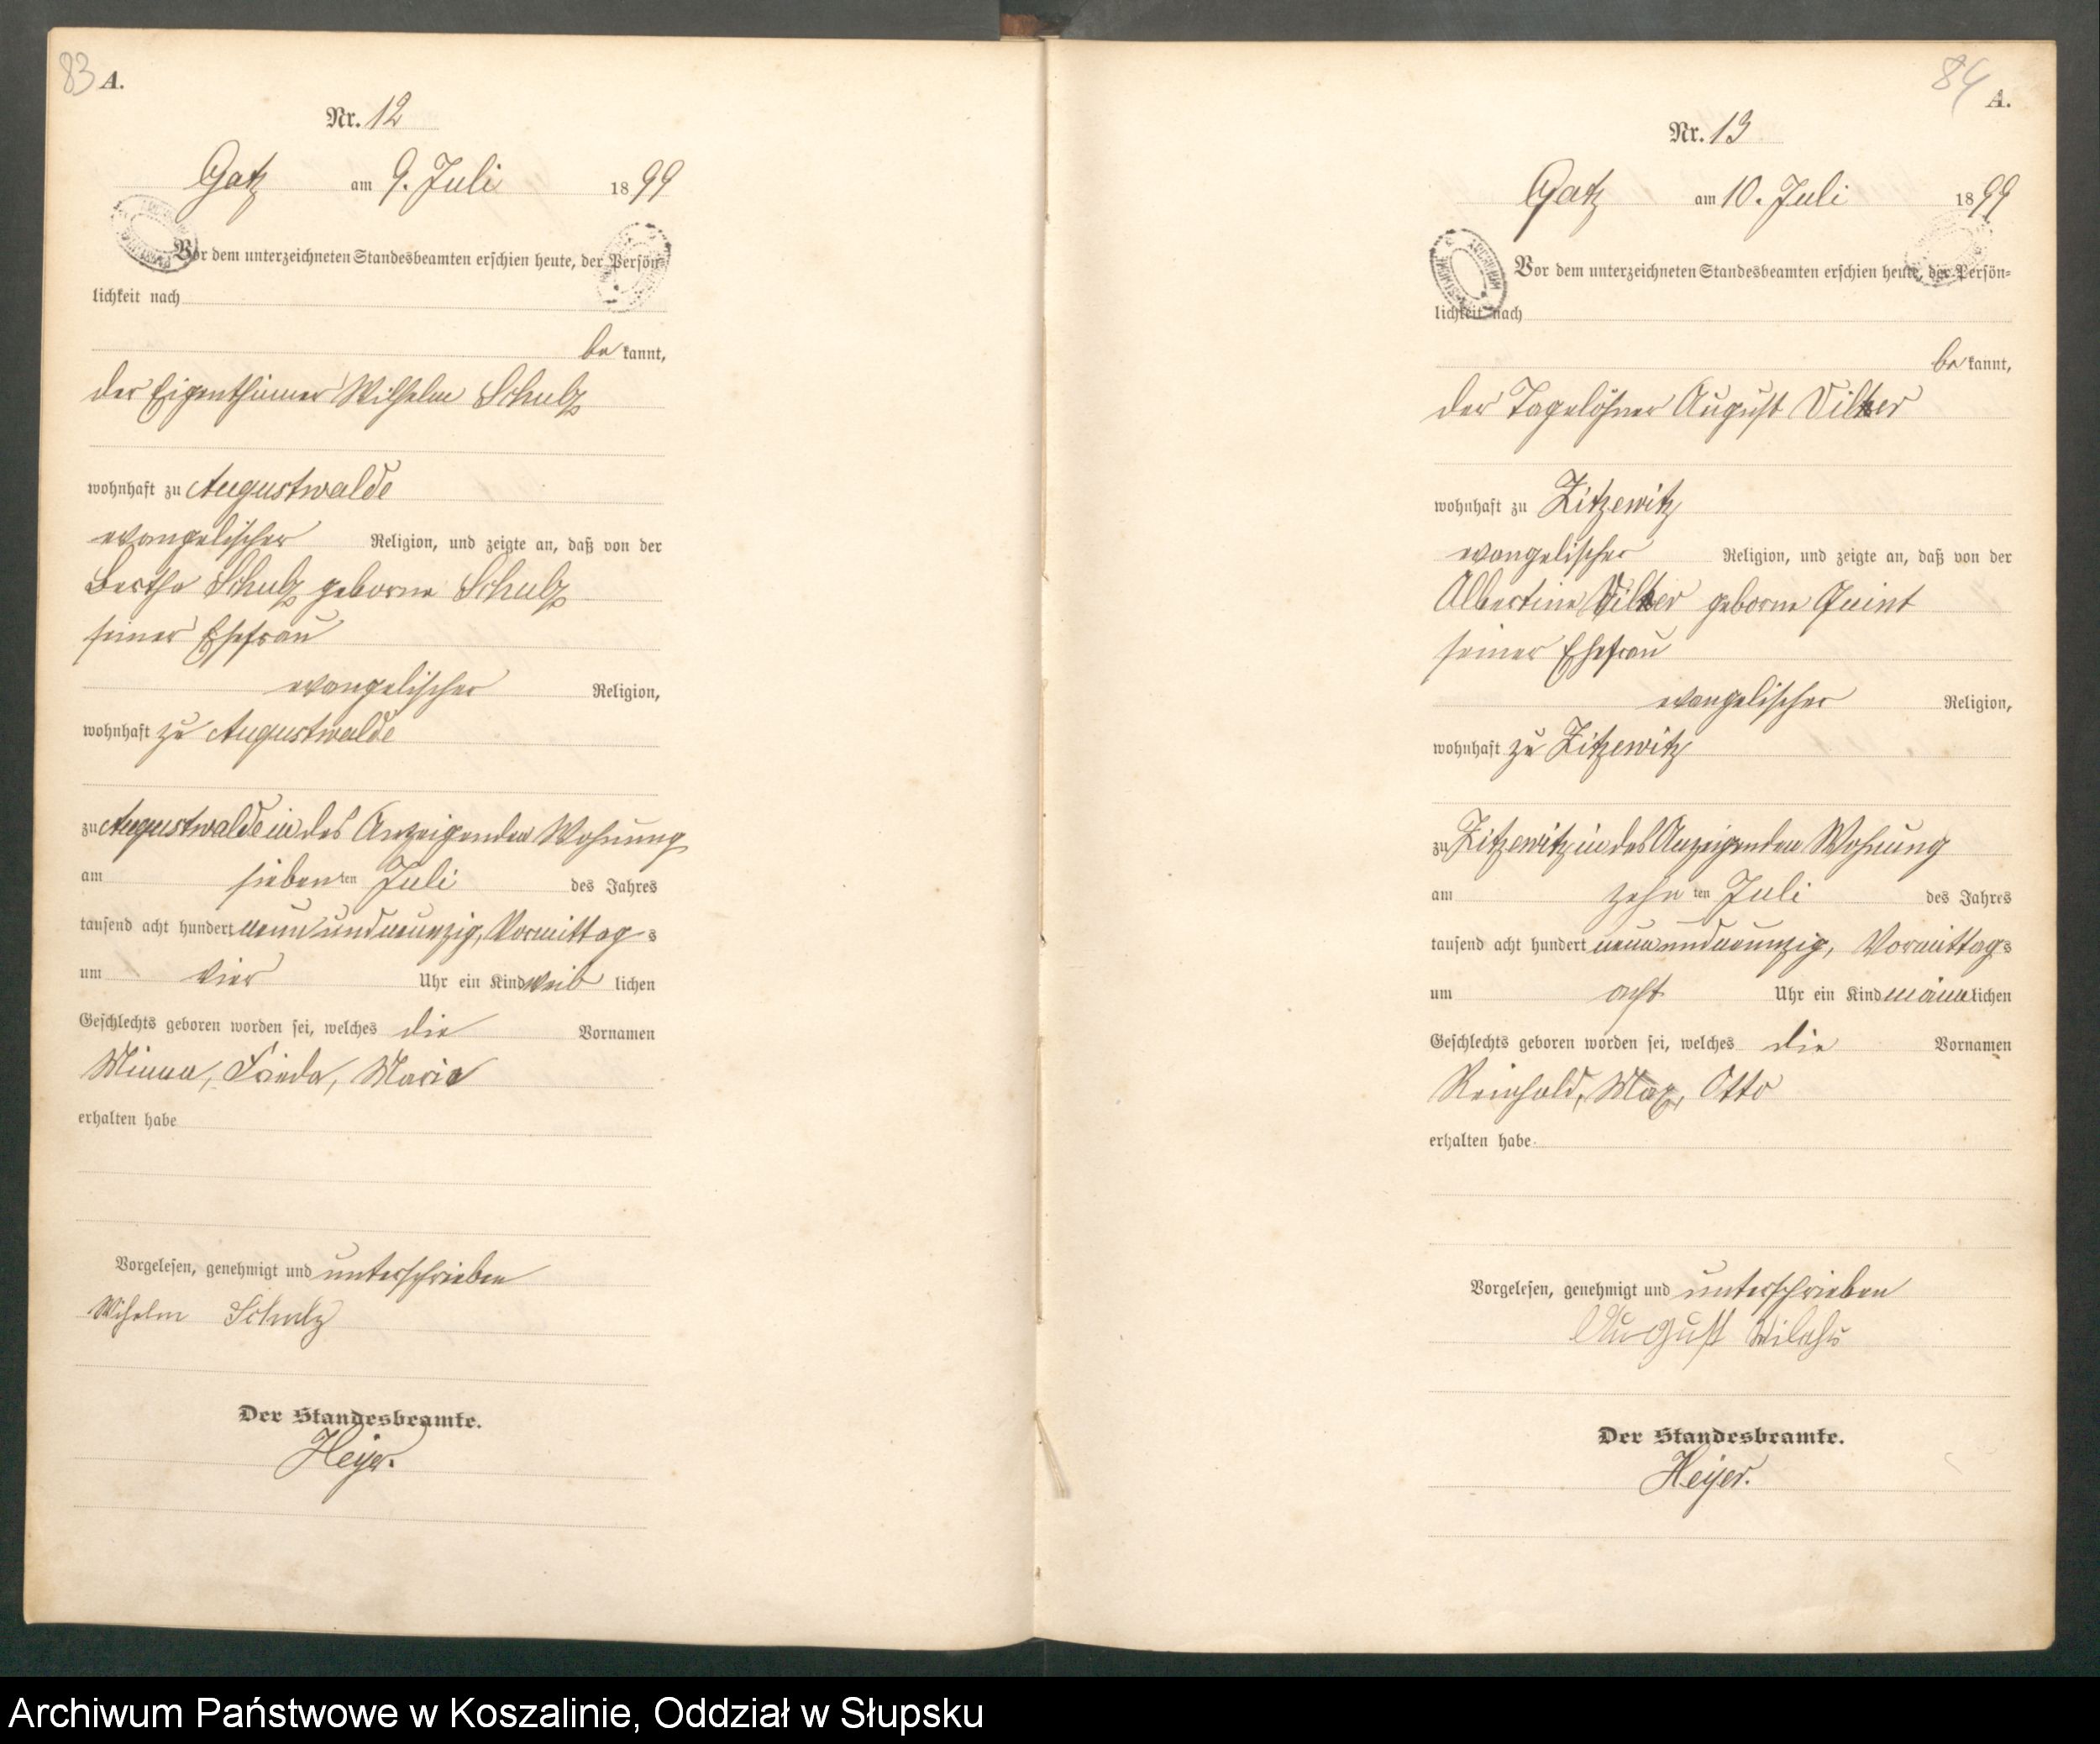 83 A.
Nr. 12
Gatz am 9. Juli 1899
Vor dem unterzeichneten Standesbeamten erschien heute, der Persön-
lichkeit nach
be kannt,
der Eigenthümer Wilhelm Schulz
wohnhaft zu Augustwalde
evangelischer Religion, und zeigte an, daß von der
Bertha Schulz geborne Schulz
seiner Ehefrau
evangelischer Religion,
wohnhaft zu Augustwalde
zu Augustwalde in des Anzeigenden Wohnung
am siebenten Juli des Jahres
tausend acht hundert neun und neunzig, Vormittags
um vier Uhr ein Kind weiblichen
Geschlechts geboren worden sei, welches die Vornamen
Minna, Frieda, Marie
erhalten habe
Vorgelesen, genehmigt und unterschrieben
Wihelm Schulz
Der Standesbeamte.
Heyer.
84 A.
Nr. 13
Gatz am 10. Juli 1899
Vor dem unterzeichneten Standesbeamten erschien heute, der Persön-
lichkeit nach
be kannt,
der Tagelöhner August
wohnhaft zu Zitzewitz
evangelischer Religion, und zeigte an, daß von der
Albertine geborne Quint
seiner Ehefrau
evangelischer Religion,
wohnhaft zu Zitzewitz
zu Zitzewitz in des Anzeigenden Wohnung
am zehnten Juli des Jahres
tausend acht hundert neun und neunzig, Vormittags
um acht Uhr ein Kind männlichen
Geschlechts geboren worden sei, welches die Vornamen
Reinhold, Max, Otto
erhalten habe
Vorgelesen, genehmigt und unterschrieben
August
Der Standesbeamte.
Heyer.
Archiwum Państwowe w Koszalinie, Oddział w Słupsku